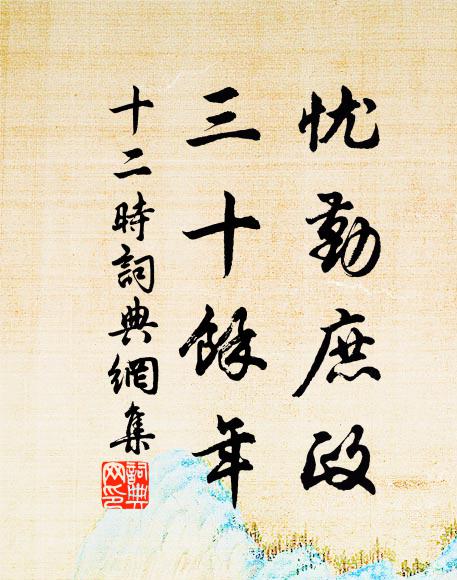 忧勤庶政
三十餘年
十二時詞典網集
詞典
网印